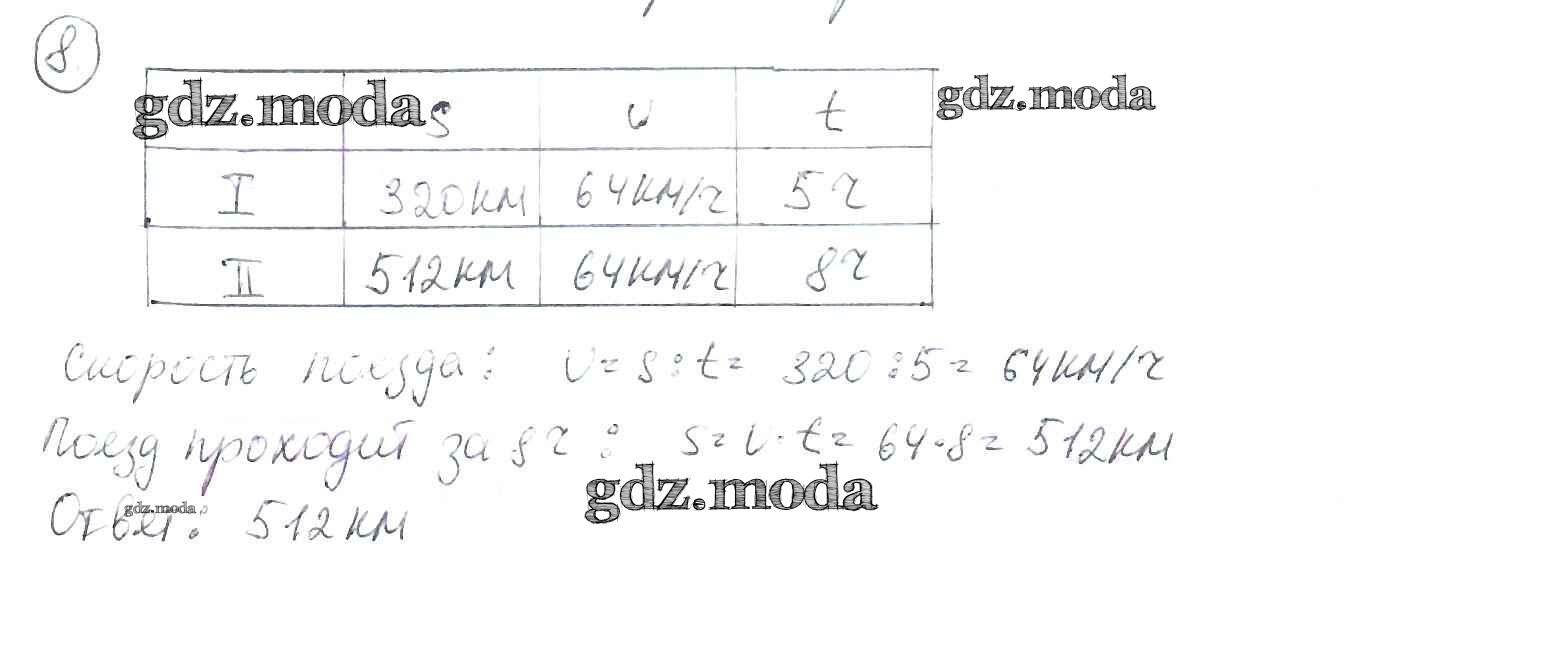 8
gdz.moda s v t gdz.moda
I 320км 64км/ч 5ч
II 512км 64км/ч 8ч
Скорость поезда: v = s : t = 320 : 5 = 64км/ч
Поезд проходит за 8ч : s = v · t = 64 · 8 = 512км
gdz.moda
Ответ: 512км
gdz.moda